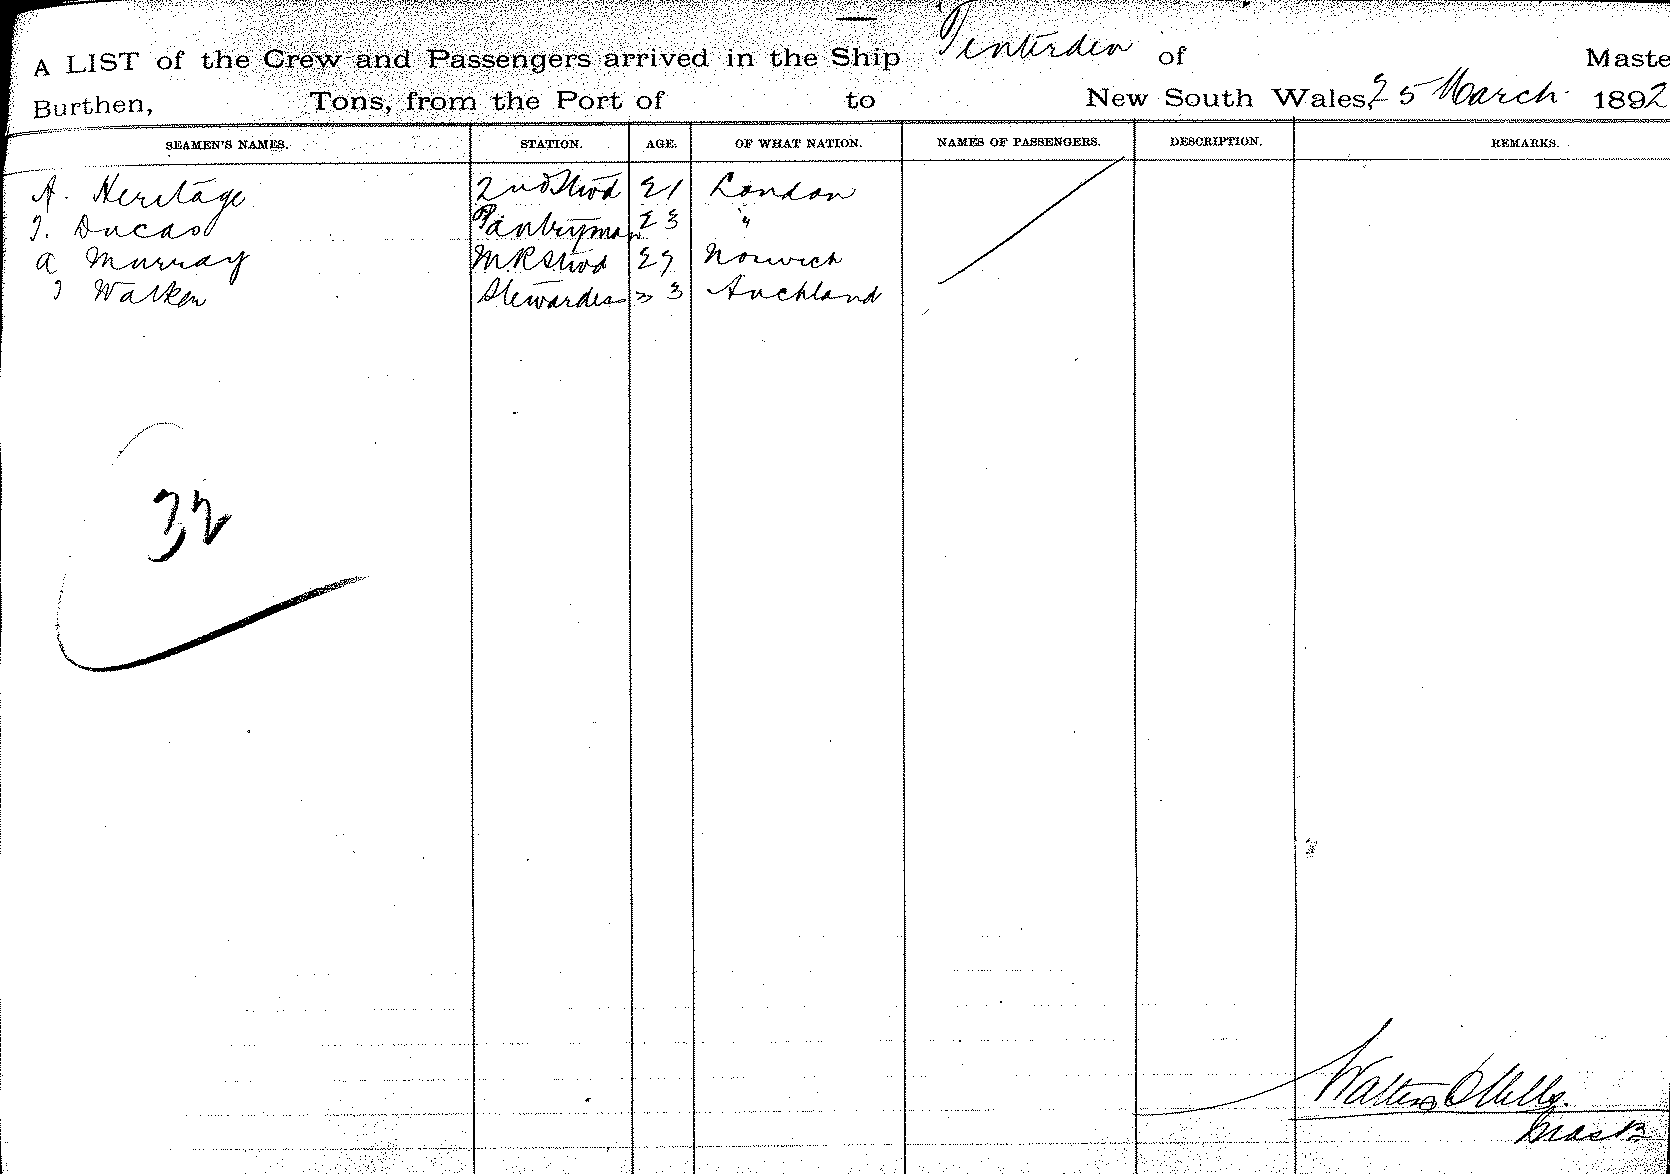 A LIST of the Crew and Passengers arrived in the Ship Tenterden of Maste
Burthen, Tons, from the Port of to New South Wales, 25 March 1892
SEAMEN'S NAMES. STATION. AGE. OF WHAT NATION. NAMES OF PASSENGERS. DESCRIPTION. REMARKS.
A. Heritage 2nd Stwd 21 London
J. Ducas Pantryman 23 "
A Murray M R Stwd 27 Norwich
J Walker Stewardess 33 Auckland
32
Walter Mills
Mast